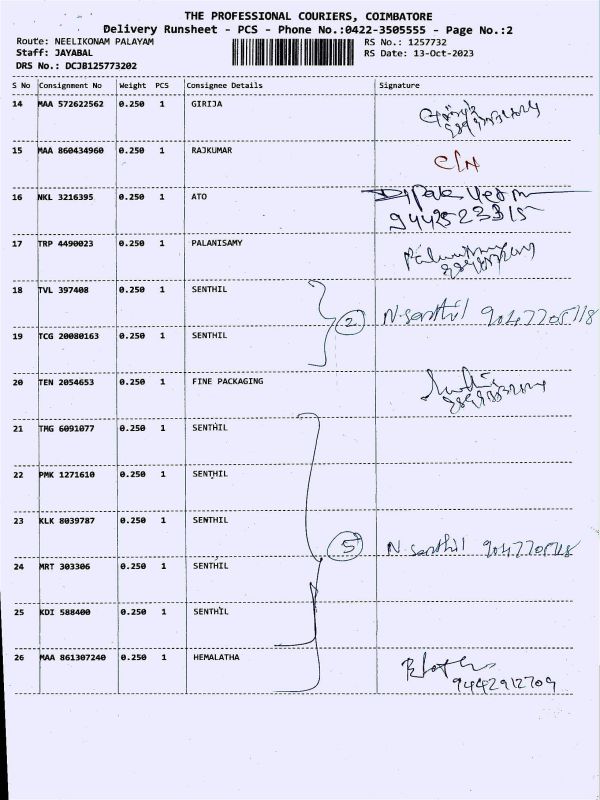 THE PROFESSIONAL COURIERS, COIMBATORE
Delivery Runsheet - PCS - Phone No.:0422-3505555 - Page No.:2
Route: NEELIKONAM PALAYAM RS No.: 1257732
Staff: JAYABAL RS Date: 13-Oct-2023
DRS No.: DCJB125773202
S No Consignment No Weight PCS Consignee Details Signature
14 MAA 572622562 0.250 1 GIRIJA
15 MAA 860434960 0.250 1 RAJKUMAR
16 NKL 3216395 0.250 1 ATO
9442523315
17 TRP 4490023 0.250 1 PALANISAMY
18 TVL 397408 0.250 1 SENTHIL
2 N.senthil 9047705718
19 TCG 20080163 0.250 1 SENTHIL
20 TEN 2054653 0.250 1 FINE PACKAGING
21 TMG 6091077 0.250 1 SENTHIL
22 PMK 1271610 0.250 1 SENTHIL
23 KLK 8039787 0.250 1 SENTHIL
5 N.senthil 9047705718
24 MRT 303306 0.250 1 SENTHIL
25 KDI 588400 0.250 1 SENTHIL
26 MAA 861307240 0.250 1 HEMALATHA
9442912709